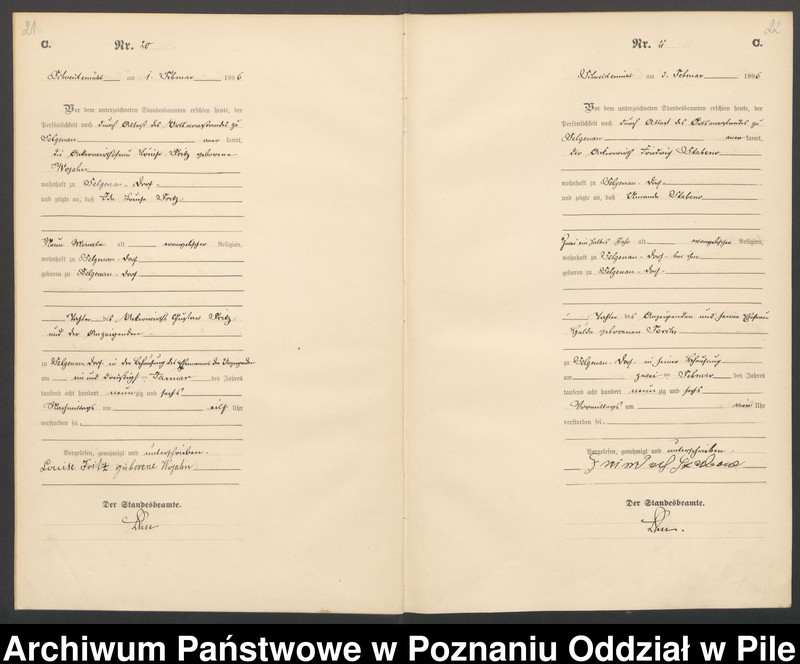 21
C. Nr. 20
Schneidemühl am 1. Februar 1896
Vor dem unterzeichneten Standesbeamten erschien heute, der
Persönlichkeit nach durch Attest des Ortsvorstandes zu
Selgenau anerkannt,
die Ackerwirthsfrau Louise Fritz geborene
Wojahn
wohnhaft zu Selgenau-Dorf
und zeigte an, daß Ida Louise Fritz
Neun Monate alt evangelischer Religion,
wohnhaft zu Selgenau-Dorf
geboren zu Selgenau-Dorf
Tochter des Ackerwirths Gustav Fritz
und der Anzeigenden
zu Selgenau-Dorf in der Behausung des Ehemannes der Anzeigenden
am ein und dreißigsten Januar des Jahres
tausend acht hundert neunzig und sechs
Nachmittags um eilf Uhr
verstorben sei.
Vorgelesen, genehmigt und unterschrieben.
Louise Fritz geborene Wojahn
Der Standesbeamte.
22
Nr. C.
Schneidemühl am 3. Februar 1896
Vor dem unterzeichneten Standesbeamten erschien heute, der
Persönlichkeit nach durch Attest des Ortsvorstandes zu
Selgenau anerkannt,
der Ackerwirth Friedrich
wohnhaft zu Selgenau-Dorf
und zeigte an, daß Amanda
Zwei ein halbes Jahr alt evangelischer Religion,
wohnhaft zu Selgenau-Dorf bei ihm
geboren zu Selgenau-Dorf
Tochter des Anzeigenden und seiner Ehefrau
Hulda geborenen
zu Selgenau-Dorf in seiner Behausung
am zwei Februar des Jahres
tausend acht hundert neunzig und sechs
Vormittags um neun Uhr
verstorben sei.
Vorgelesen, genehmigt und unterschrieben.
Der Standesbeamte.
Archiwum Państwowe w Poznaniu Oddział w Pile